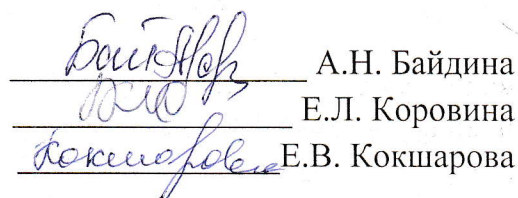 А.Н. Байдина
Е.Л. Коровина
Кокшарова Е.В. Кокшарова